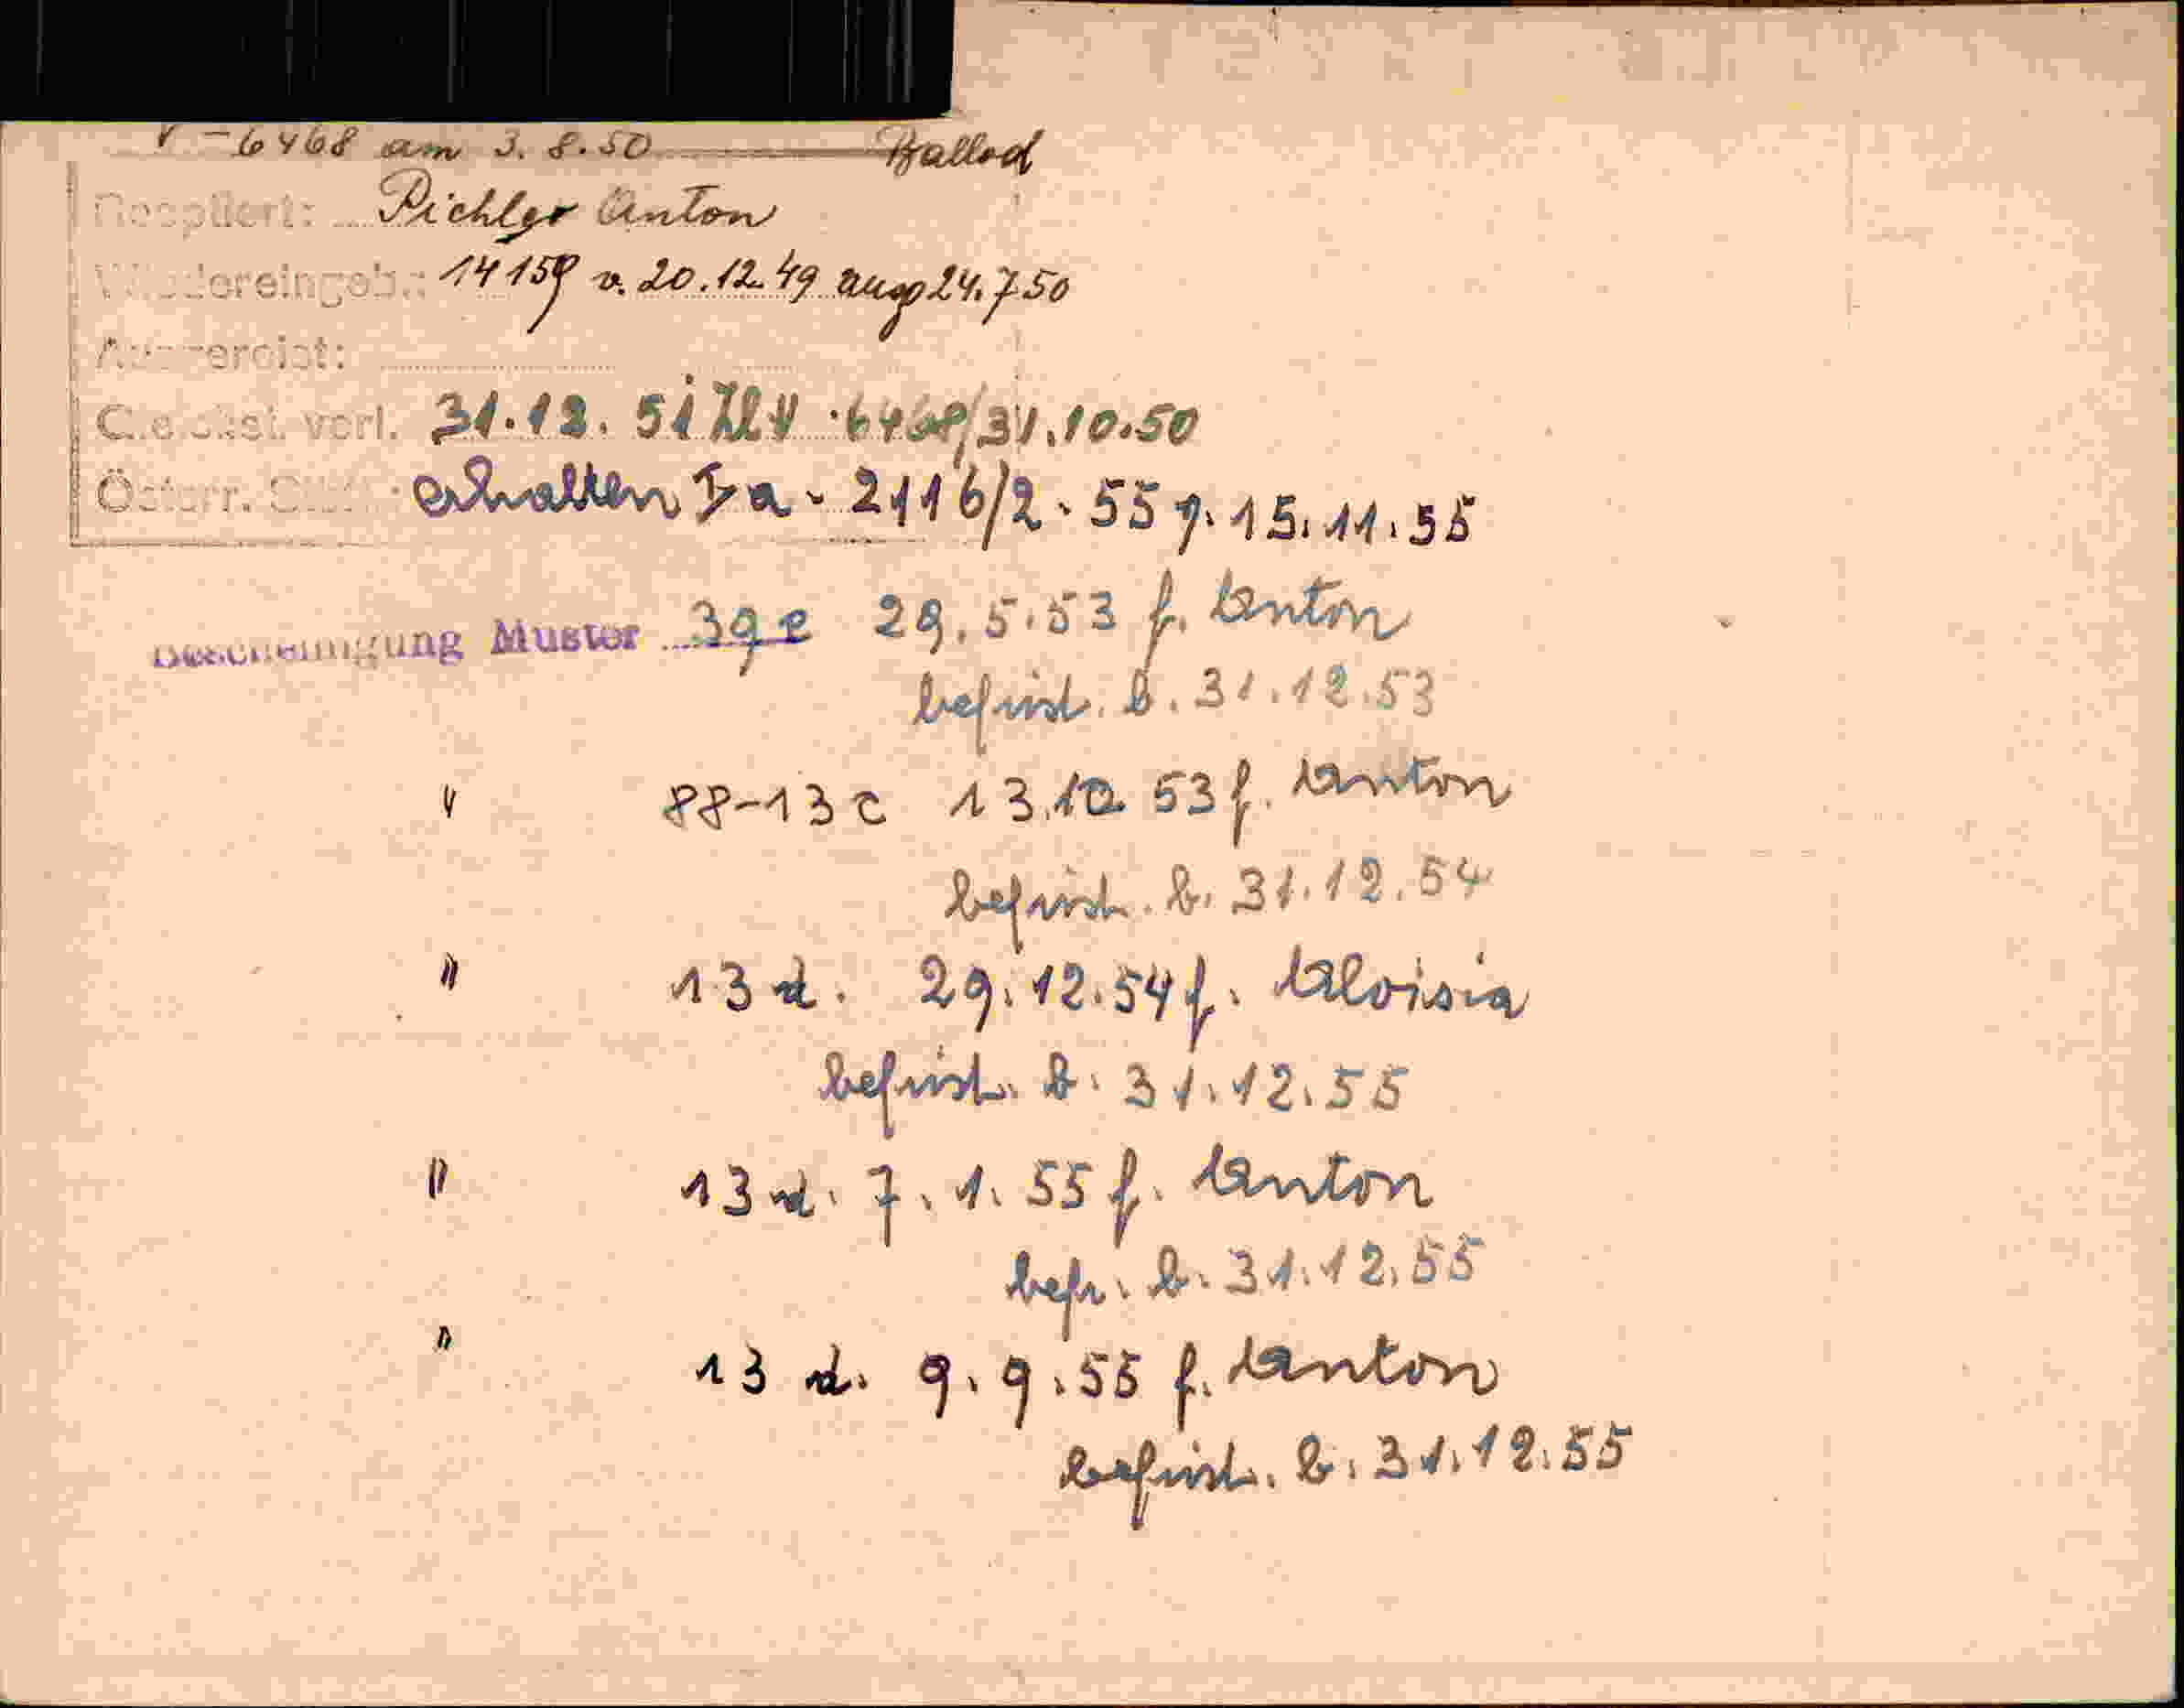 V - 6468 am 3. 8. 50 Ballod
Reoptiert: Pichler Anton
Wiedereingeb.: 14159 v. 20.12.49 ausg 24.7.50
Ausgereist:
verl. 31.12.51 Zl V 6468/31.10.50
Österr. erhalten Ia - 2116/2 - 55 v. 15.11.55
Bescheinigung Muster 39e 29.5.53 f. Anton
befrist. b. 31.12.53
" 88-13c 13.10 53 f. Anton
befrist. b. 31.12.54
" 13 d. 29.12.54 f. Aloisia
befrist. b. 31.12.55
" 13 d. 7.1.55 f. Anton
befr. b. 31.12.55
" 13 d. 9.9.55 f. Anton
befrist. b. 31.12.55